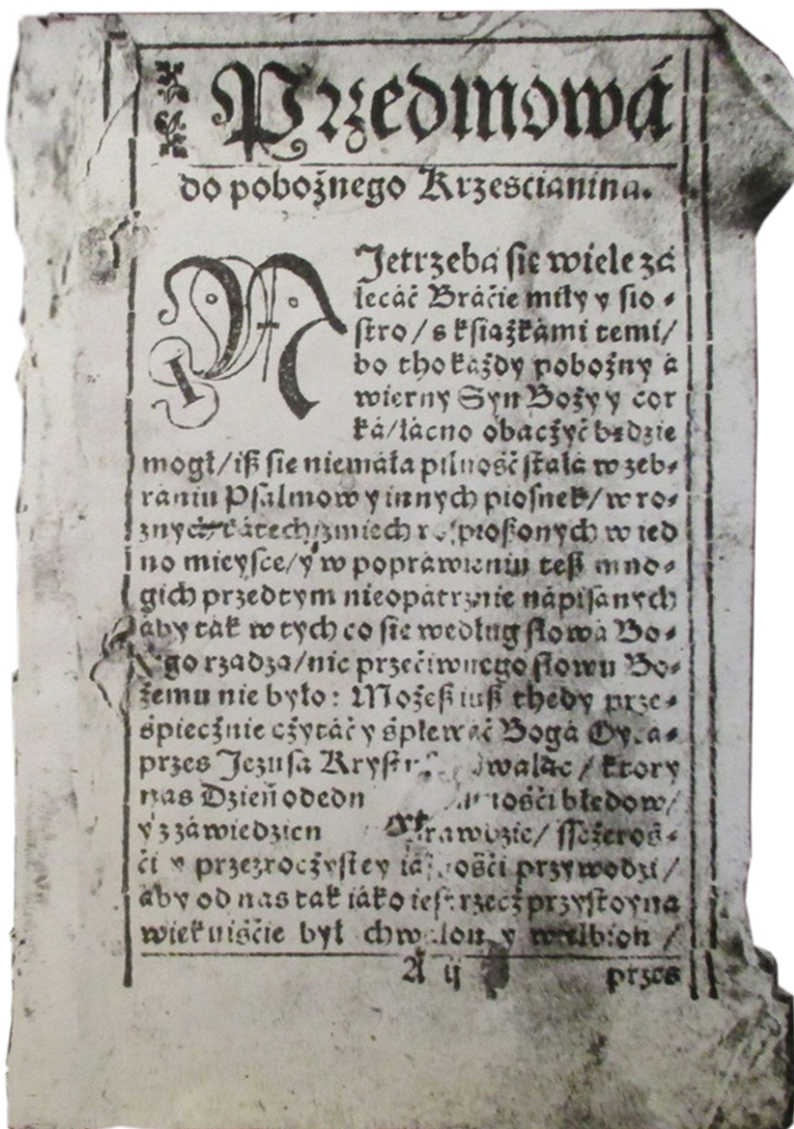 Przedmowá
do pobożnego Krześcianina.
NJetrzebá się wiele zá
lecáć Bráćie miły y sio⸗
stro/ s kśiąszkámi temi/
bo tho każdy pobożny á
wierny Syn Boży y cor
ká/ łácno obaczyć będzie
mogł/ iß sie niemáła pilność stáłá w zeb⸗
rániu Psalmow y innych piosnek/ w roz⸗
znych kátechizmiech w ied
no mieysce/ y w popráwieniu teß mno⸗
gich przedtym nieopátrznie nápisánych
áby ták w tych co sie według słowá Bo⸗
żego rządzą/ nic przećiwnego słowu Bo⸗
żemu nie było: Możeß iuß thedy prze⸗
śpiecżnie cżytáć y śpiewáć Bogá
przes Jezusá ktory
nas Dzień odedn błedow/
y z záwiedzien
ći y przezrocżystey przywodzi/
áby od nas ták iáko iest rzecż przystoyna
wiekuiśćie był y wielbion/
A ij przes